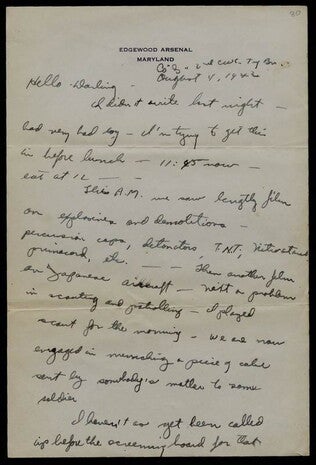 20
EDGEWOOD ARSENAL
MARYLAND
Co B - 2nd C.W.C. Tg Bn
August 4, 1942
Hello Darling -
I didn't write last night -
had very bad day - I'm trying to get this
in before lunch - 11:45 now -
eat at 12 -
This A.M. we saw lengthy film
on explosives and demolitions -
percussion caps, detonators, T.N.T., Nitrostarch
primacord, etc. - Then another film
on Japanese aircraft - next a problem
in scouting and patrolling - I played
scout for the morning - We are now
engaged in munching a piece of cake
sent by somebody's mother to some
soldier
I haven't as yet been called
up before the screening board for that